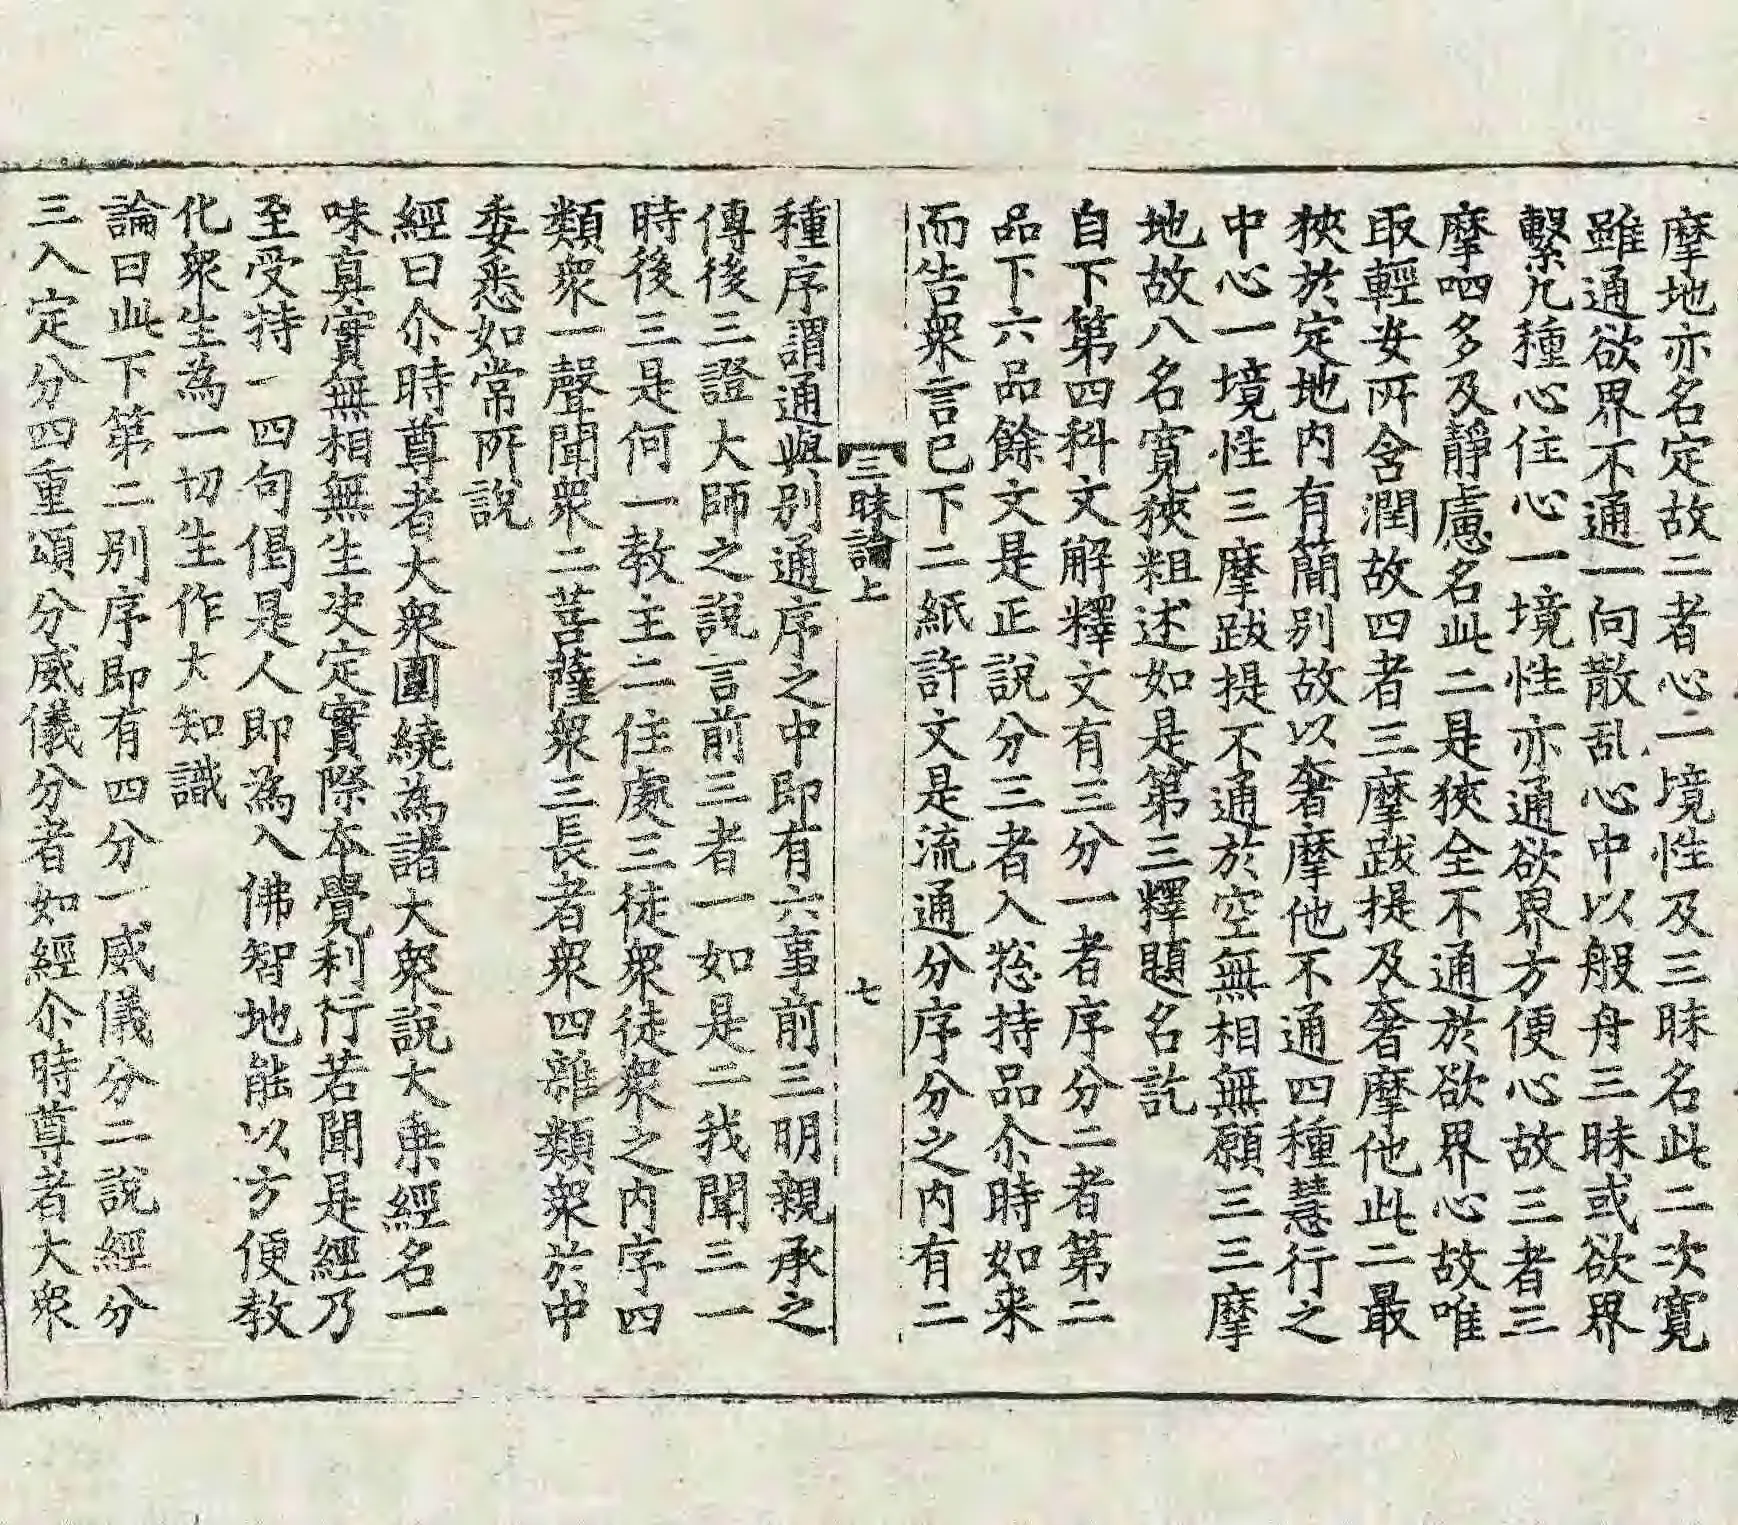 摩地亦名定故二者心一境性及三昧名此二次寬
雖通欲界不通一向散乱心中以般舟三昧或欲界
繫九種心住心一境性亦通欲界方便心故三者三
摩呬多及靜慮名此二是狹全不通於欲界心故唯
取輕安所含潤故四者三摩跋提及奢摩他此二最
狹於定地内有簡別故以奢摩他不通四種慧行之
中心一境性三摩跋提不通於空無相無願三三摩
地故八名寬狹粗述如是第三釋題名訖
自下第四科文解釋文有三分一者序分二者第二
品下六品餘文是正說分三者入惣持品尒時如来
而告衆言已下二紙許文是流通分序分之内有二
三昧論上
七
種序謂通與別通序之中即有六事前三明親承之
傳後三證大師之說言前三者一如是二我聞三一
時後三是何一教主二住處三徒衆徒衆之内字四
類衆一聲聞衆二菩薩衆三長者衆四雜類衆於中
委悉如常所說
經曰尒時尊者大衆圍繞為諸大衆說大乗經名一
味真實無相無生决定實際本覺利行若聞是經乃
至受持一四句偈是人即為入佛智地能以方便教
化衆生為一切生作大知識
論曰此下第二別序即有四分一威儀分二說經分
三入定分四重頌分威儀分者如經尒時尊者大衆